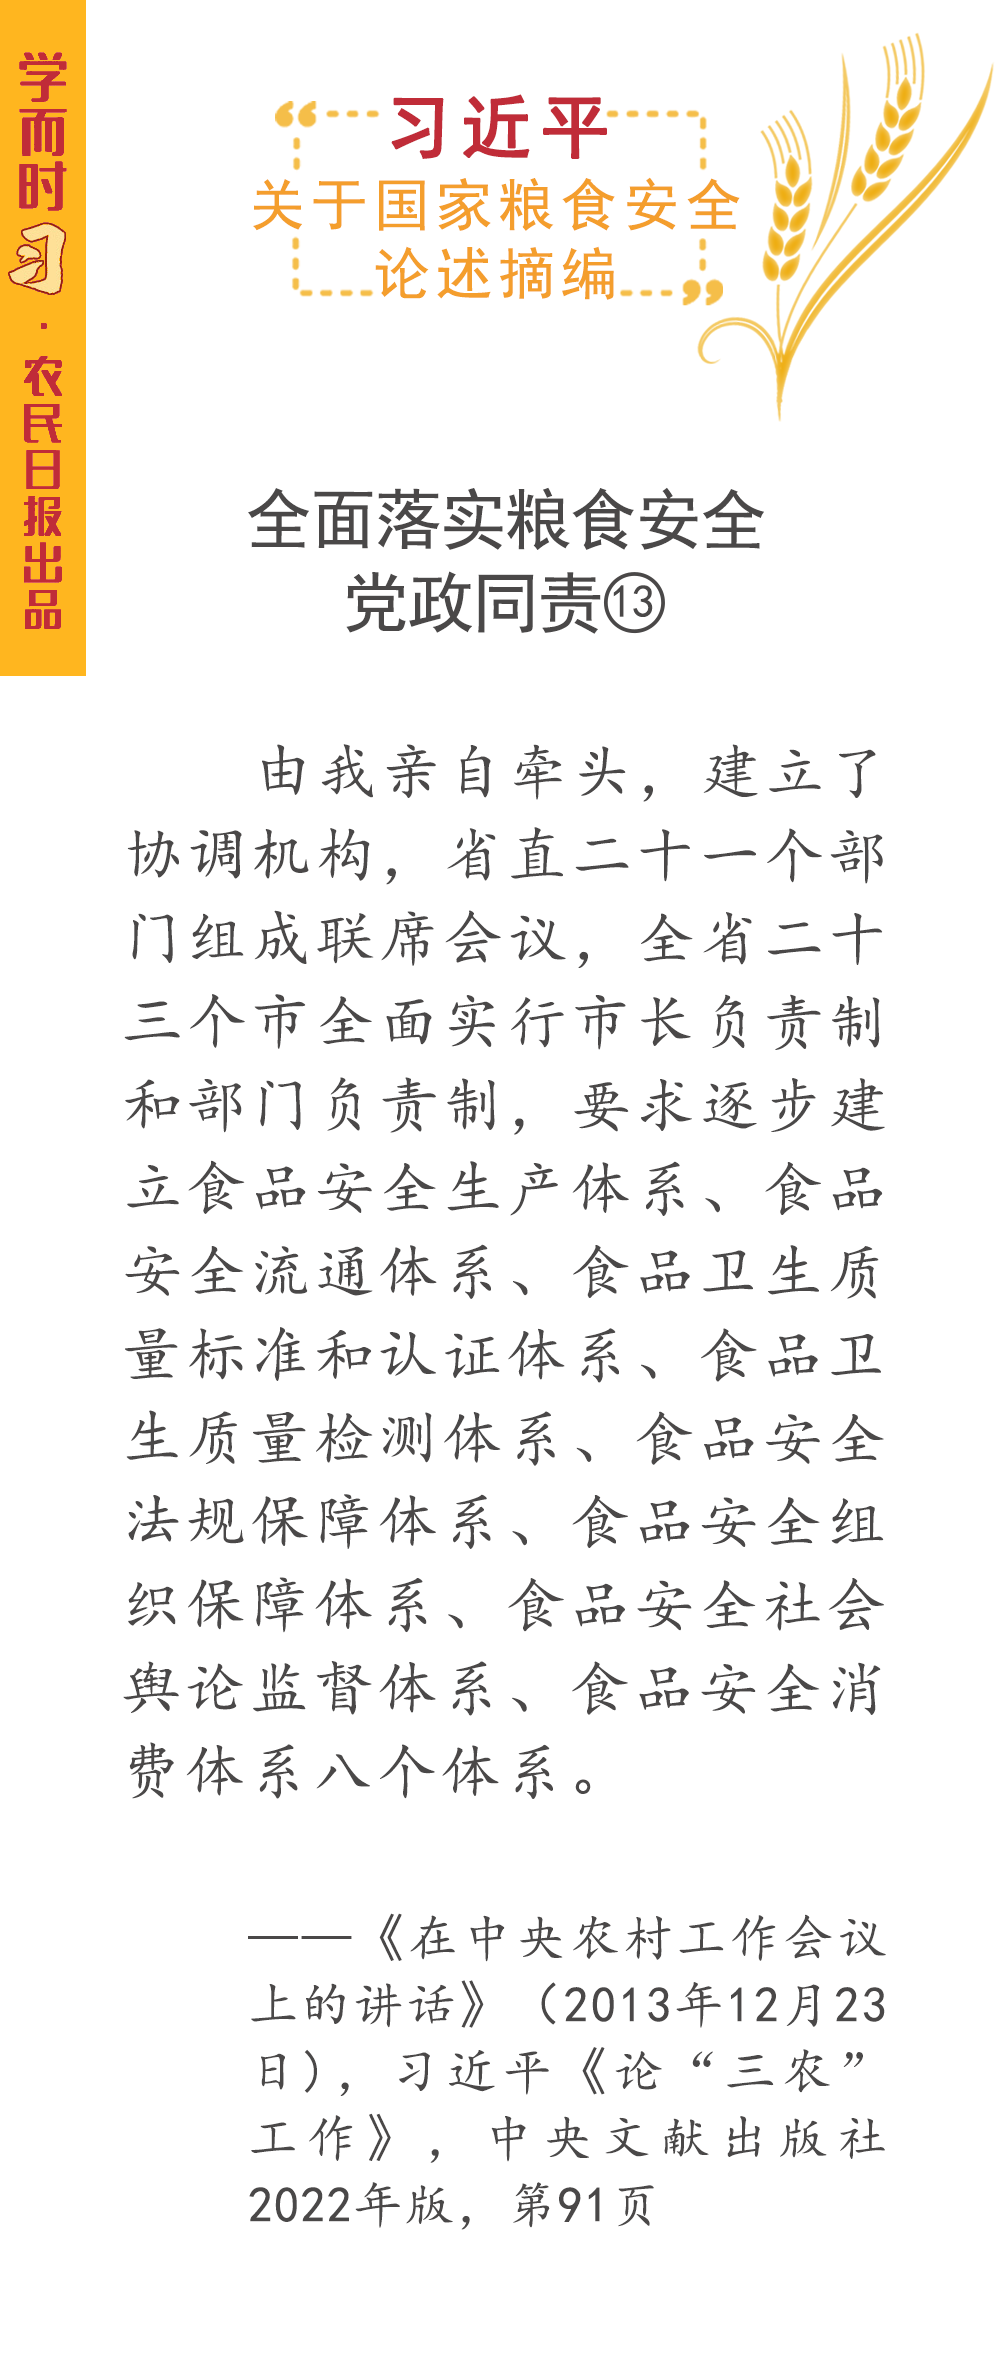 学而时习·农民日报出品
“习近平
关于国家粮食安全
论述摘编”
全面落实粮食安全
党政同责⑬
由我亲自牵头，建立了
协调机构，省直二十一个部
门组成联席会议，全省二十
三个市全面实行市长负责制
和部门负责制，要求逐步建
立食品安全生产体系、食品
安全流通体系、食品卫生质
量标准和认证体系、食品卫
生质量检测体系、食品安全
法规保障体系、食品安全组
织保障体系、食品安全社会
舆论监督体系、食品安全消
费体系八个体系。
——《在中央农村工作会议
上的讲话》（2013年12月23
日），习近平《论“三农”
工作》，中央文献出版社
2022年版，第91页